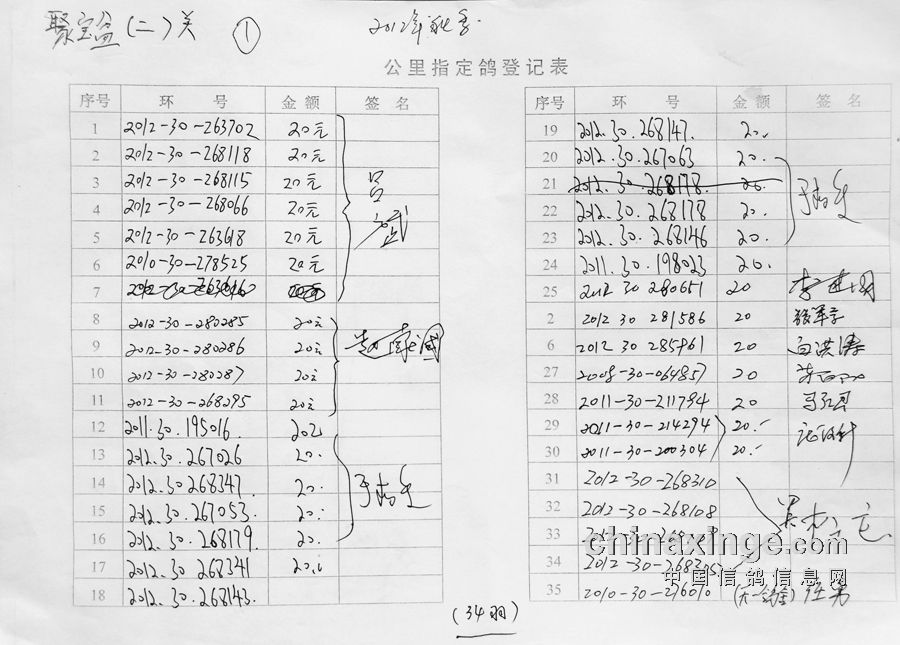 聚宝盆(二)关 ① 2012年秋季
公里指定鸽登记表
序号 环 号 金 额 签 名
1 2012-30-263702 20元
2 2012-30-268118 20元
3 2012-30-268115 20元
4 2012-30-268066 20元
5 2012-30-263618 20元
6 2010-30-278525 20元
7
8 2012-30-280285 20元
9 2012-30-280286 20元
10 2012-30-280287 20元
11 2012-30-268295 20元
12 2011.30.195016. 20元
13 2012.30.267026 20.
14 2012.30 268347. 20.
15 2012.30.267053. 20.
16 2012.30.268179. 20.
17 2012.30 268341 20.
18 2012.30.268143.
序号 环 号 金 额 签 名
19 2012.30.268147. 20.
20 2012.30.267063 20.
21 2012.30.268178. 20.
22 2012.30.268178 20.
23 2012.30.268146 20.
24 2011.30.198023 20.
25 2012 30 280651 20
2 2012 30 281586 20
6 2012 30 285961 20 白洪涛
27 2008-30-064857 20
28 2011-30-211794 20
29 2011-30-214294 20.
30 2011-30-200304 20.
31 2012-30-268310
32 2012-30-268108
33 2012-30-
34 2012-30-
35 2010-30-276010
(34羽)
chinaxinge.com
中国信鸽信息网